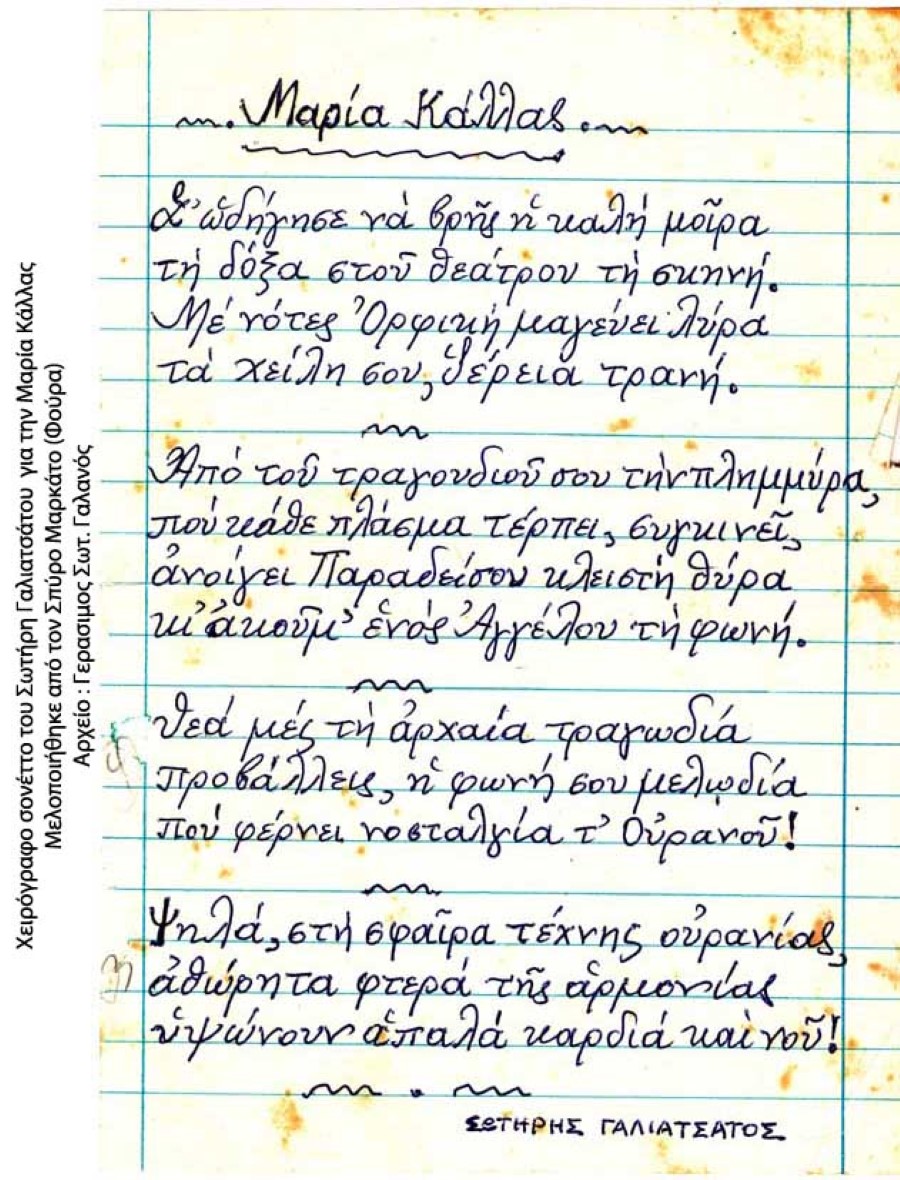 Χειρόγραφο σονέττο του Σωτήρη Γαλιατσάτου για την Μαρία Κάλλας
Μελοποιήθηκε από τον Σπύρο Μαρκάτο (Φούρα)
Αρχείο : Γερασιμος Σωτ. Γαλανός
Μαρία Κάλλας
Σ' ὡδήγησε νά βρῆς ἡ καλή μοῖρα
τή δόξα στοῦ θεάτρου τή σκηνή.
Μέ νότες Ὀρφική μαγεύει λύρα
τά χείλη σου, ἱέρεια τρανή.
Ἀπό τοῦ τραγουδιοῦ σου τήν πλημμύρα,
πού κάθε πλάσμα τέρπει, συγκινεῖ,
ἀνοίγει Παραδείσου κλειστή θύρα
κι' ἀκοῦμ' ἑνός Ἀγγέλου τή φωνή.
Θεά μές τή ἀρχαία τραγωδία
προβάλλεις, ἡ φωνή σου μελῳδία
πού φέρνει νοσταλγία τ' Οὐρανοῦ!
Ψηλά, στή σφαῖρα τέχνης οὐρανίας,
ἀθώρητα φτερά τῆς ἁρμονίας
ὑψώνουν ἁπαλά καρδιά καί νοῦ!
ΣΩΤΗΡΗΣ ΓΑΛΙΑΤΣΑΤΟΣ